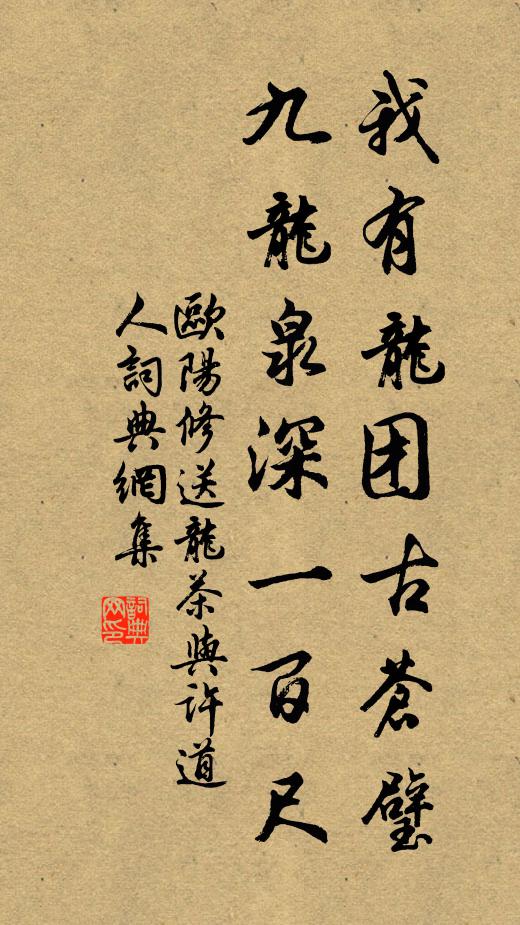 我有龍团古蒼璧
九龍泉深一百尺
歐陽修送龍茶與許道
人詞典網集
詞典
网印